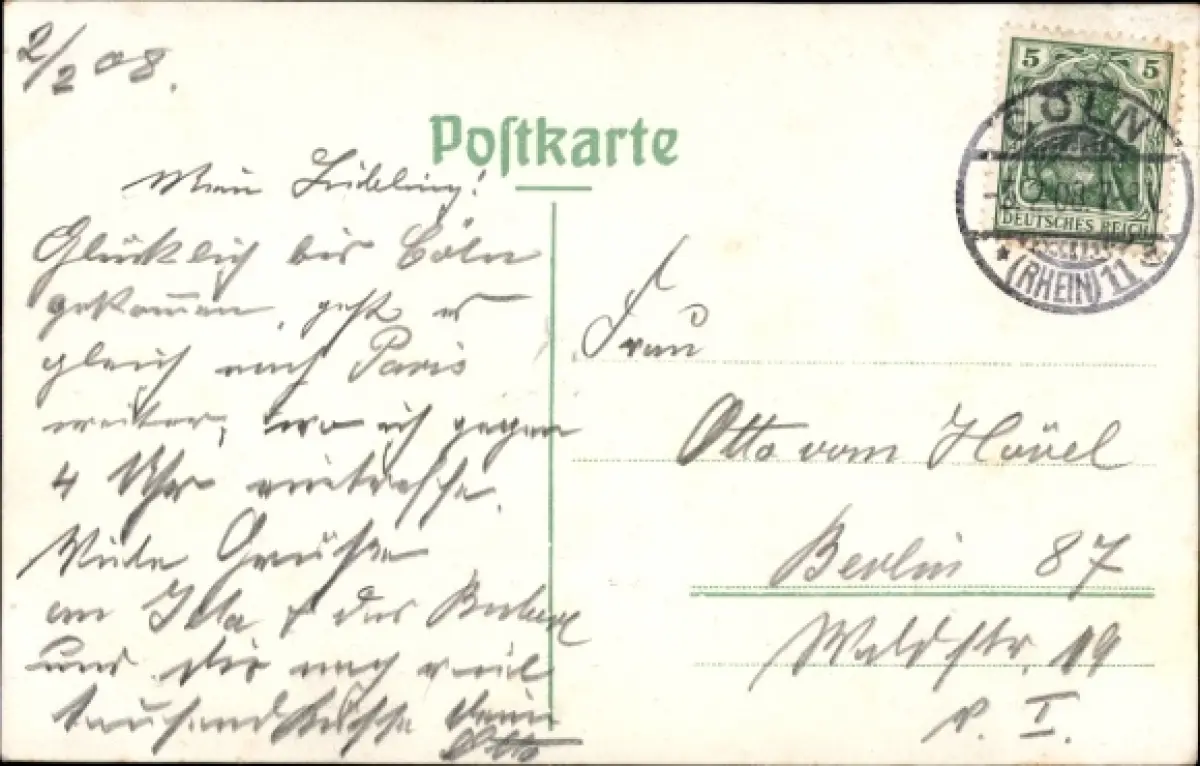 2/2 08.
Postkarte
5 5
CÖLN
DEUTSCHES REICH
(RHEIN) 11
Mein Liebling!
Glücklich bis Cöln
gekommen, geht es
gleich nach Paris
weiter, wo ich gegen
4 Uhr eintreffe.
Viele Grüße
an Ida & das
und Dir noch viel
tausend Küsse Dein
Otto
Frau
Otto vom Hövel
Berlin 87
Waldstr. 19
v. I.